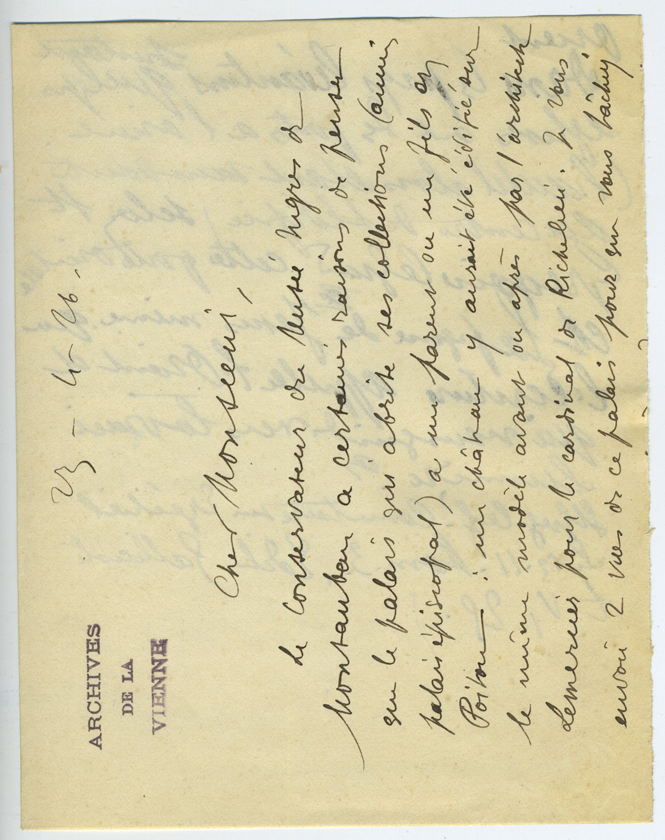 ARCHIVES
DE LA
VIENNE
23 – 4 – 26.
Cher Monsieur,
Le conservateur du Musée Ingres de
Montauban a certaines raisons de penser
que le palais qui abrite ses collections (ancien
palais épiscopal) a un parent ou un fils en
Poitou : un château y aurait été édifié sur
le même modèle avant ou après par l'architecte
Lemercier pour le cardinal de Richelieu. Je vous
envoie 2 vues de ce palais pour que vous tâchiez